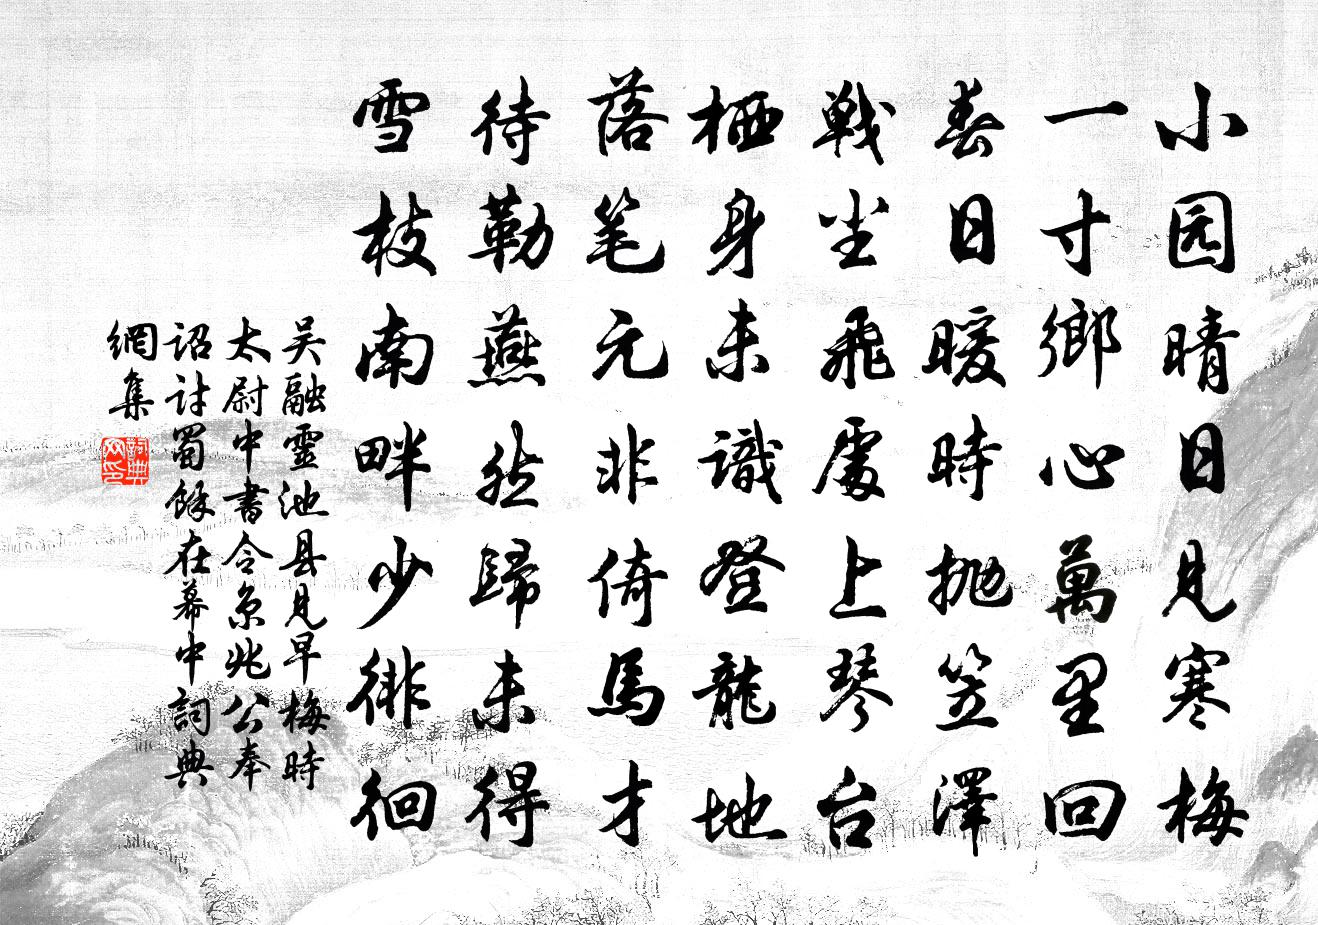 小园晴日見寒梅
一寸鄉心萬里回
春日暖時抛笠澤
戰塵飛處上琴台
栖身未識登龍地
落笔元非倚馬才
待勒燕然歸未得
雪枝南畔少徘徊
吴融靈池县見早梅時
太尉中書令京兆公奉
詔討蜀餘在幕中詞典
網集
詞典
网印